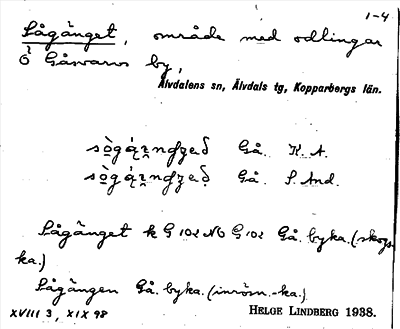 1-4
Sågänget, område med odlingar
Ö Gåsvarv by,
Älvdalens sn, Älvdals tg, Kopparbergs län.
Gå. K. A.
Gå. S. And.
Sågänget k G 102 Gå. byka. (skogs-
ka.)
Sågängen Gå. byka. (inrösn.-ka.)
XVIII 3, XIX 98
HELGE LINDBERG 1938.